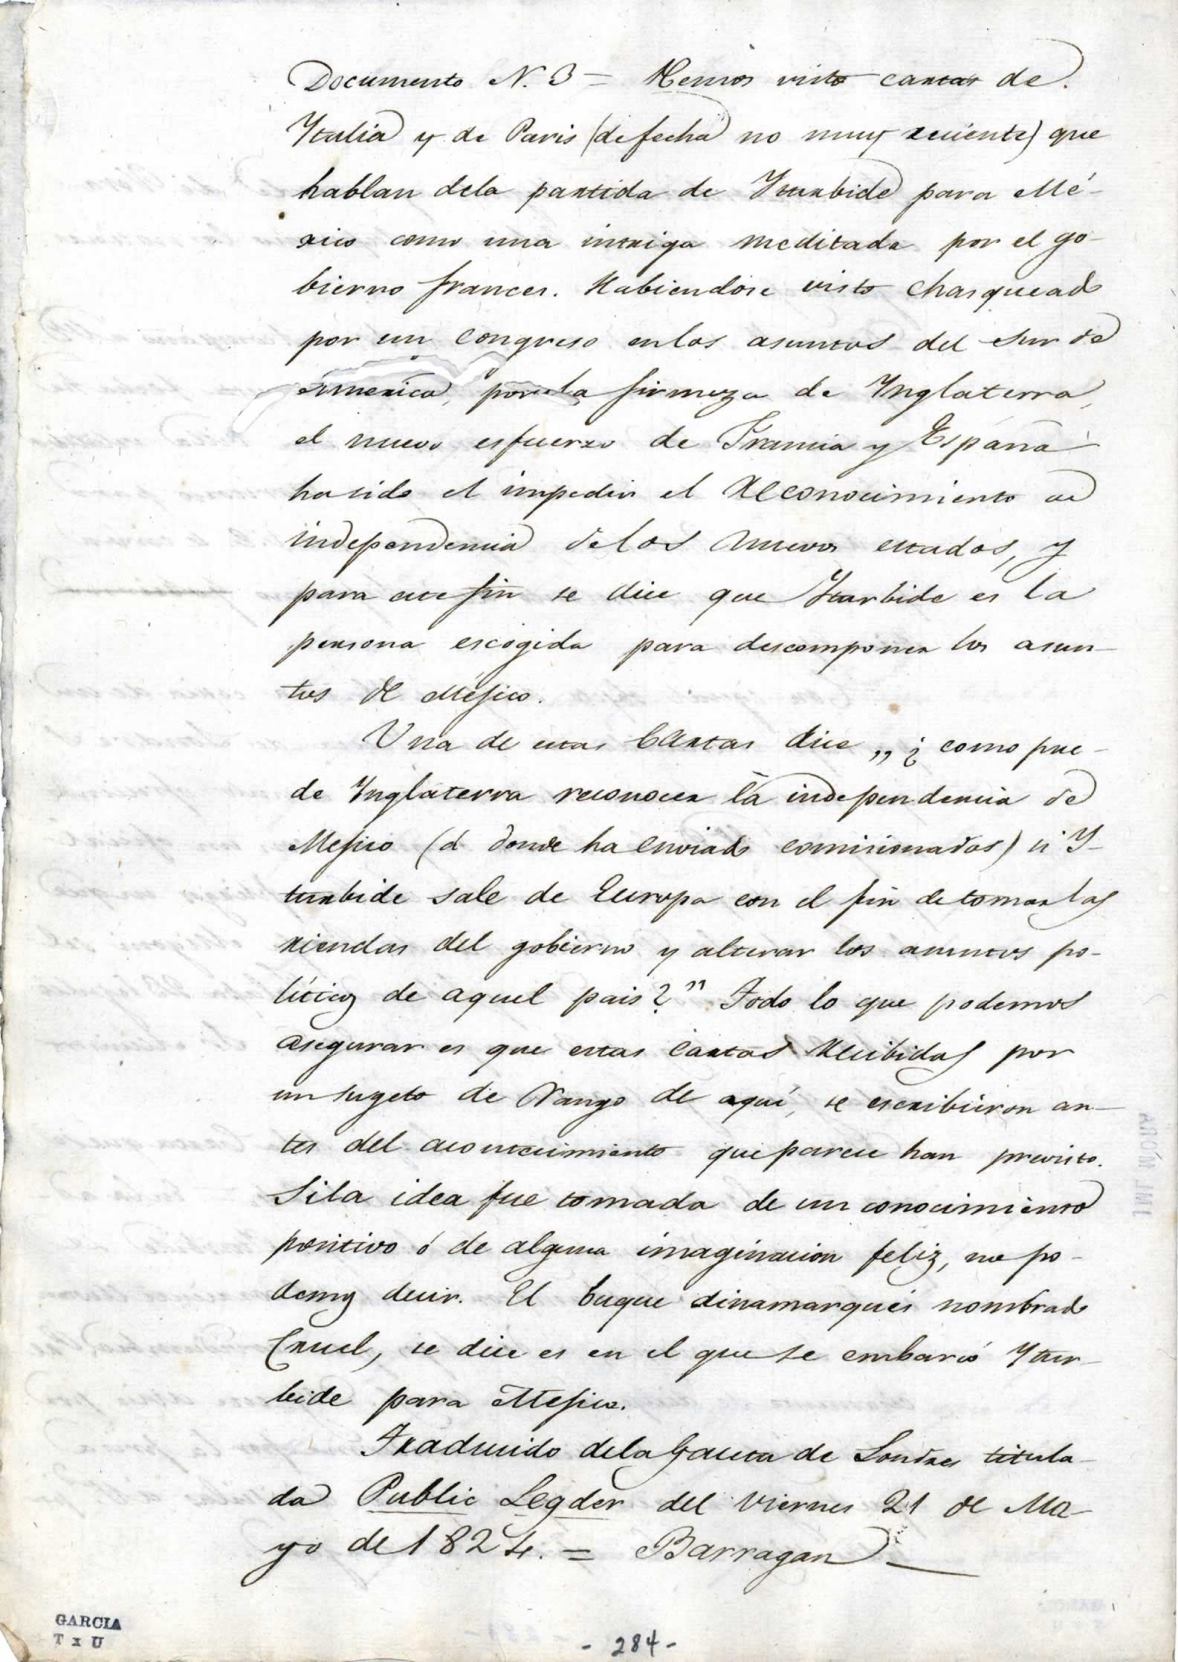 Documento N. 3 = Hemos visto cartas de
Ytalia y de Paris (de fecha no muy reciente) que
hablan dela partida de Yturbide para Mé-
xico como una intriga meditada por el go-
bierno frances. Habiendose visto chasqueado
por un congreso enlos asuntos del Sur de
America, por la firmeza de Ynglaterra,
el nuevo esfuerzo de Francia y España
ha sido el impedir el reconocimiento de
independencia delos nuevos estados, y
para este fin se dice que Yturbide es la
persona escogida para descomponer los asun-
tos de Mejico.
Una de estas Cartas dice „ ¿ como pue-
de Ynglaterra reconocer la independencia de
Mejico (á donde ha enviado comisionados) si Y-
turbide sale de Europa con el fin de tomar las
riendas del gobierno y alterar los asuntos po-
líticos de aquel pais?" Todo lo que podemos
asegurar es que estas Cartas recibidas por
un sugeto de Rango de aquí, se escribieron an-
tes del acontecimiento que parece han previsto.
Sila idea fue tomada de un conocimiento
positivo ó de alguna imaginacion feliz, no po-
demos decir. El buque dinamarqués nombrado
Cruel, se dice es en el que se embarcó Ytur-
bide para Mejico.
Traducido dela Gaceta de Londres titula-
da Public Legder del Viernes 21 de Ma-
yo de 1824. = Barragan
GARCIA
T x U
- 284 -
JML MORA